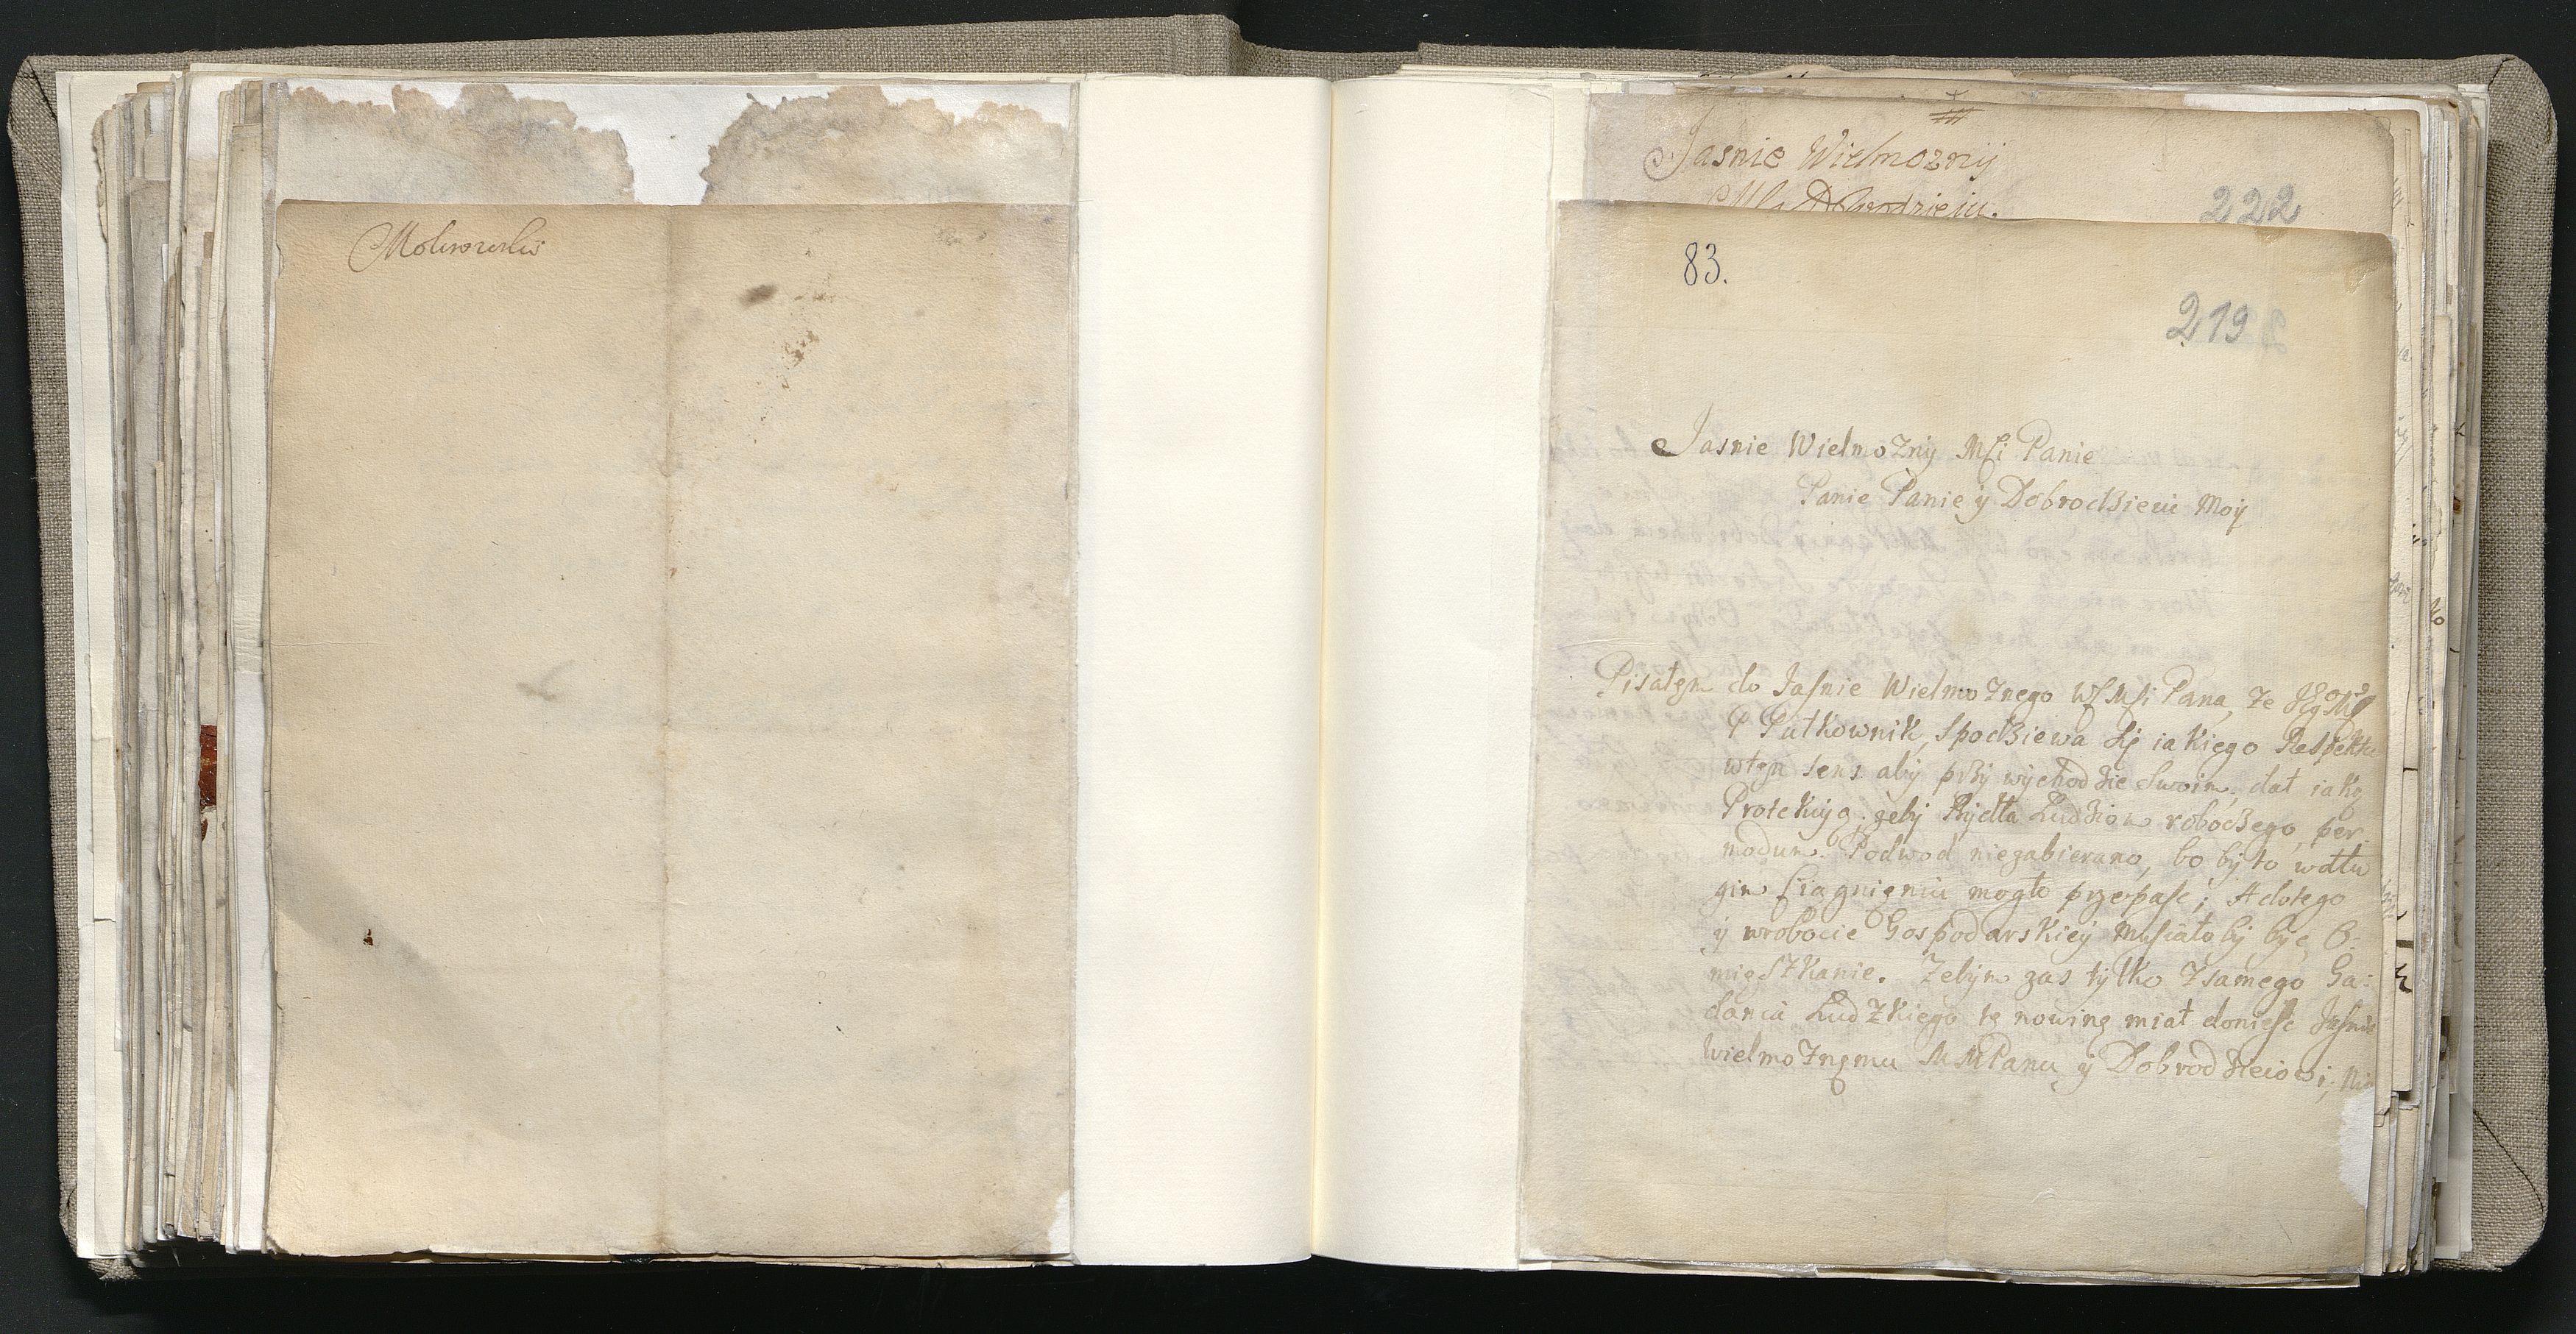 Jasnie Wielmozny
222
83.
219
Jasnie Wielmozny Msci Panie
Panie Panie y Dobrodzieiu Moy
Pisałem do Jasnie Wielmoznego WMsci Pana, ze
P Pułkownik, spodziewa się iakiego Respektu
wtym sens aby przy wychodzie swoim, dał iaką
Protekcyą, zeby Bydła Ludziom roboczego, per
modum Podwod niezabierano, bo by to wdłu
gim ciągnieniu mogło przepasc; A dotego
y wrobocie Gospodarskiey musiało by byc O:
mięszkanie. Zebym zas tylko zsamego Ga:
dania Ludzkiego tę nowinę miał doniesc Jasnie
Wielmoznemu MMPanu y Dobrodzieiowi; Nie